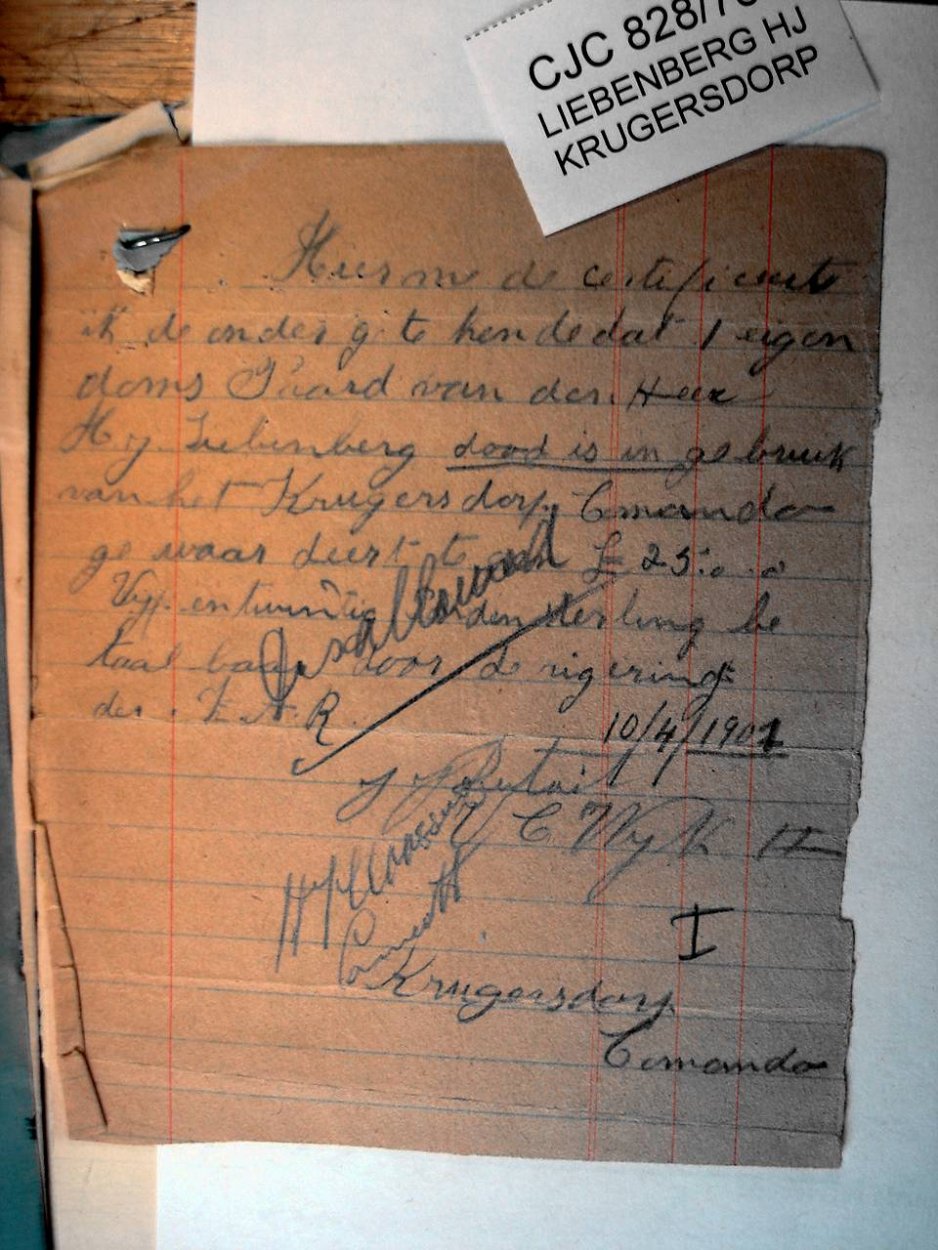 CJC 828/
LIEBENBERG HJ
KRUGERSDORP
Hierme de certificeets
ik de onder g te kende dat 1 eigen
doms Paard van den Heer
H. J. Liebenberg dood is in gebruik
van het Krugersdorp Comando
ge waar deert te £ 25:0.0
Vyf en twintig sterling be
taal baar door de rigering
der Z.A.R.
10/4/1901
V C Wyk
I
Krugersdorp
Comando